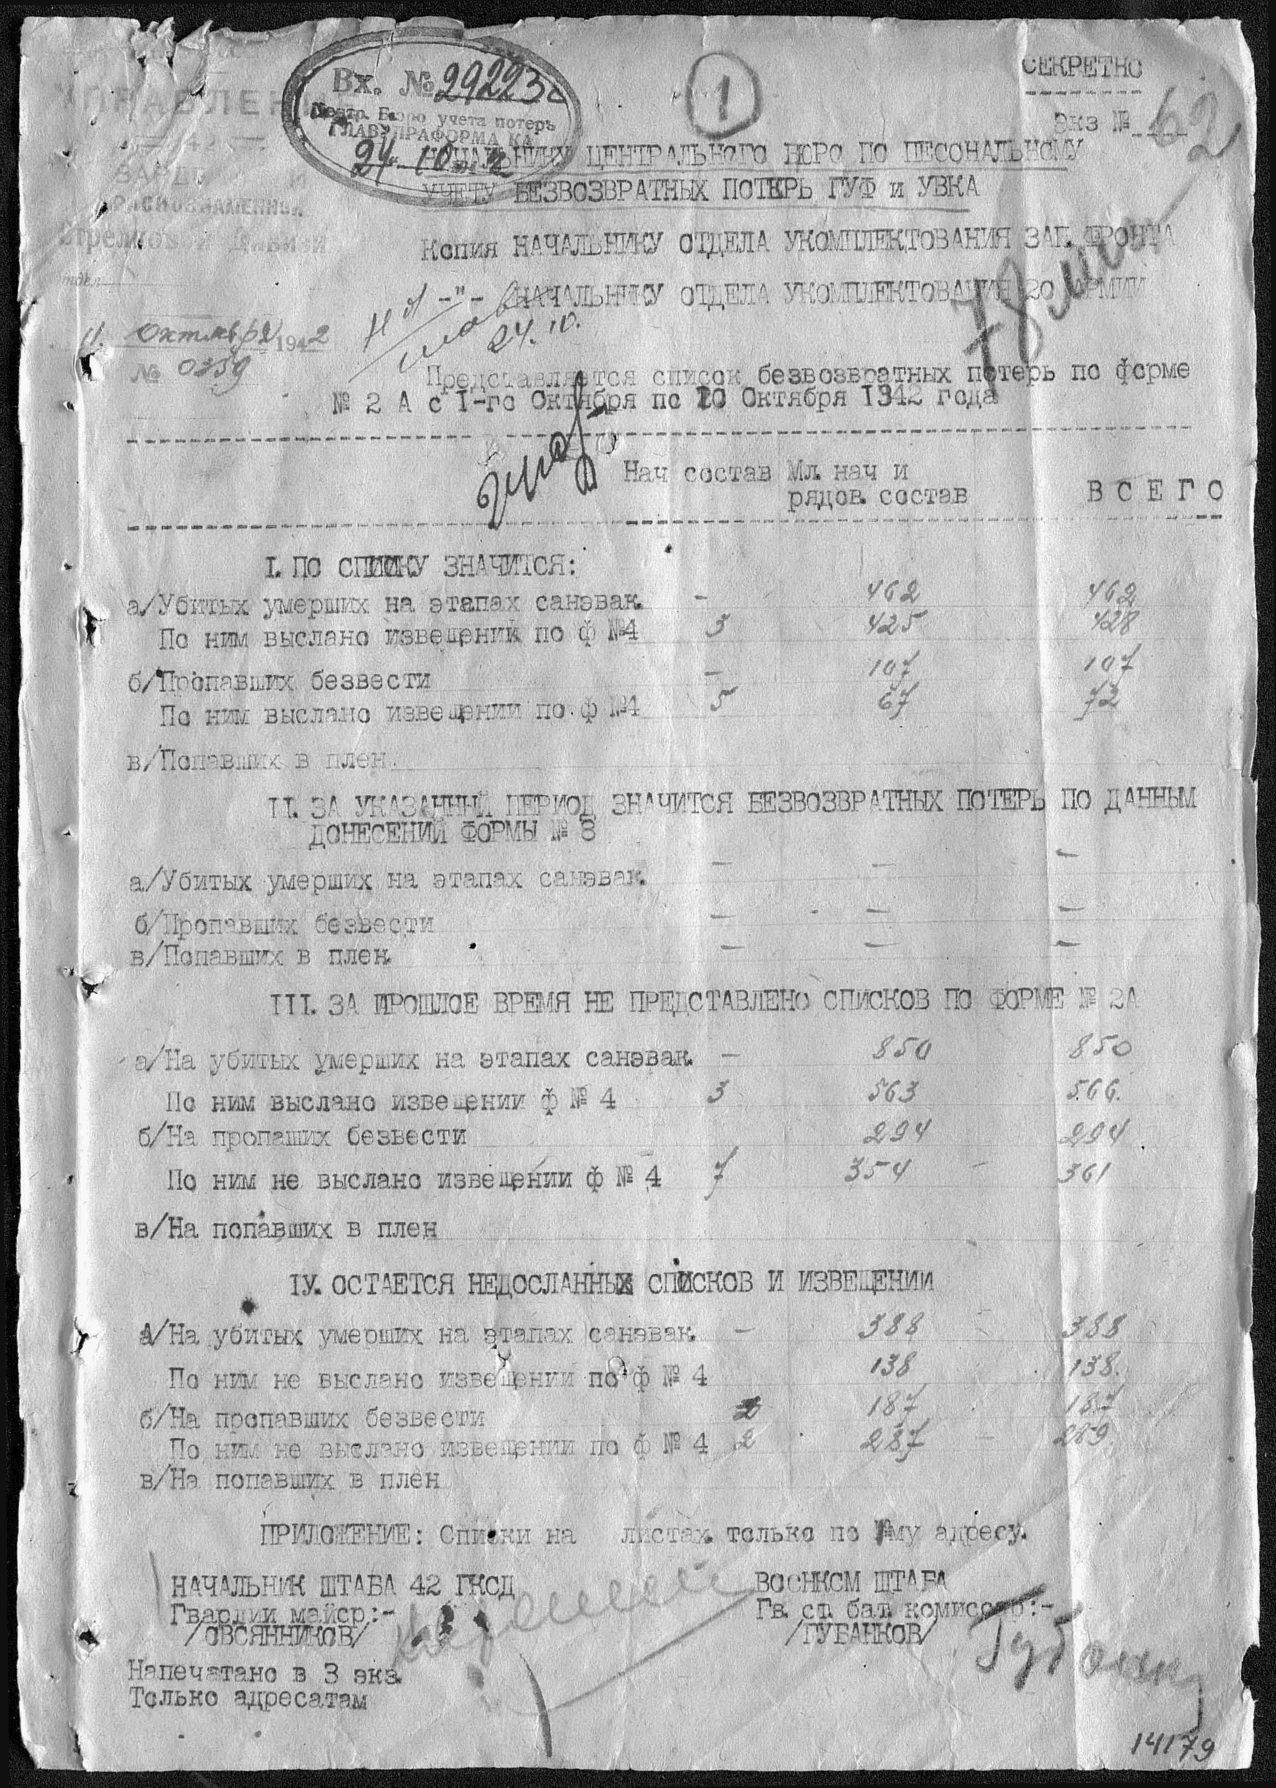 СЕКРЕТНО
Экз №
62
1
Вх. № 29223с
Центр. Бюро учета потерь
ГЛАВУПРАФОРМА КА
24-10
УПРАВЛЕНИЕ
42
ГВАРДЕЙСКОЙ
КРАСНОЗНАМЕННОЙ
Стрелковой Дивизии
отдел
11. октября 1942
№ 0359
НАЧАЛЬНИКУ ЦЕНТРАЛЬНОГО БЮРО ПО ПЕСОНАЛЬНОМУ
УЧЕТУ БЕЗВОЗВРАТНЫХ ПОТЕРЬ ГУФ и УВКА
Копия НАЧАЛЬНИКУ ОТДЕЛА УКОМПЛЕКТОВАНИЯ ЗАП. ФРОНТА
-"- НАЧАЛЬНИКУ ОТДЕЛА УКОМПЛЕКТОВАНИЯ 20 АРМИИ
24.10.
78
Представляется список безвозвратных потерь по форме
№ 2 А с I-го Октября по 10 Октября 1942 года
Нач состав Мл. нач и
рядов. состав ВСЕГО
I. ПО СПИСКУ ЗНАЧИТСЯ:
а/Убитых умерших на этапах санэвак. - 462 462
По ним выслано извещений по ф №4 3 425 428
б/Пропавших безвести - 107 107
По ним выслано извещении по ф №4 5 67 72
в/Попавших в плен.
II. ЗА УКАЗАННЫЙ ПЕРИОД ЗНАЧИТСЯ БЕЗВОЗВРАТНЫХ ПОТЕРЬ ПО ДАННЫМ
ДОНЕСЕНИЙ ФОРМЫ № 8
а/Убитых умерших на этапах санэвак. - - -
б/Пропавших безвести - - -
в/Попавших в плен. - - -
III. ЗА ПРОШЛОЕ ВРЕМЯ НЕ ПРЕДСТАВЛЕНО СПИСКОВ ПО ФОРМЕ № 2А
а/На убитых умерших на этапах санэвак. - 850 850
По ним выслано извещении ф № 4 3 563 566.
б/На пропаших безвести 294 294
По ним не выслано извещении ф № 4 7 354 - 361
в/На попавших в плен
IУ. ОСТАЕТСЯ НЕДОСЛАННЫХ СПИСКОВ И ИЗВЕЩЕНИИ
А/На убитых умерших на этапах санэвак. - 388 388
По ним не выслано извещении по ф № 4 138 138.
б/На пропавших безвести 2 187 187
По ним не выслано извещении по ф № 4 2 287 289
в/На попавших в плен
ПРИЛОЖЕНИЕ: Списки на листах только по 1му адресу.
НАЧАЛЬНИК ШТАБА 42 ГКСД ВОЕНКОМ ШТАБА
Гвардии майор:- Гв. ст. бат. комиссар:-
/ОВСЯННИКОВ/ /ГУБАНКОВ/
Напечатано в 3 экз.
Только адресатам
14179